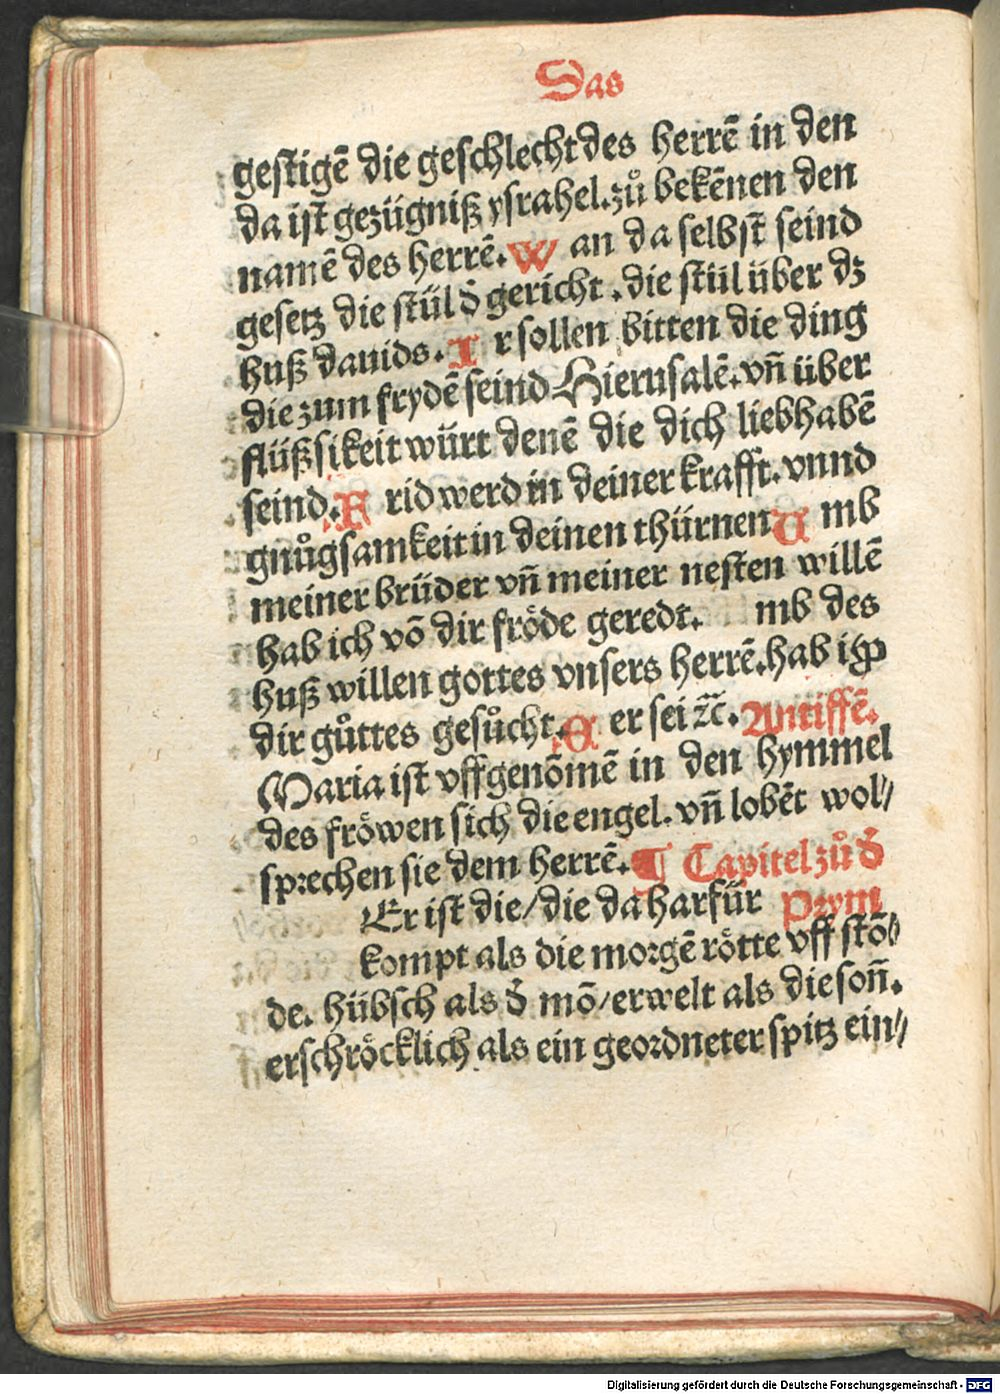 Das
gestigē die geschlecht des herrē in den
da ist gezügniß ysrahel. zů bekēnen den
namē des herrē. W an da selbst seind
gesetz die stül d̄ gericht. die stül über dz
huß dauids. I r sollen bitten die ding
die zum frydē seind Hierusalē. vñ über
flüßsikeit würt denē die dich liebhabē
seind. F rid werd in deiner krafft. vnnd
gnůgsamkeit in deinen thürnen V mb
meiner brüder vñ meiner nesten willē
hab ich vō dir fröde geredt. mb des
huß willen gottes vnsers herrē. hab
dir gůttes gesůcht. E er sei ꝛc̄. Antiffē.
Maria ist vffgenōmē in den hymmel
des fröwen sich die engel. vñ lobēt wol//
sprechen sie dem herrē. ¶ Capitel zů d̄
Er ist die/die da harfür Prym
kompt als die morgē rötte vff stō//
de. hübsch als d̄ mō/erwelt als die soñ.
erschröcklich als ein geordneter spitz ein//
Digitalisierung gefördert durch die Deutsche Forschungsgemeinschaft - DFG